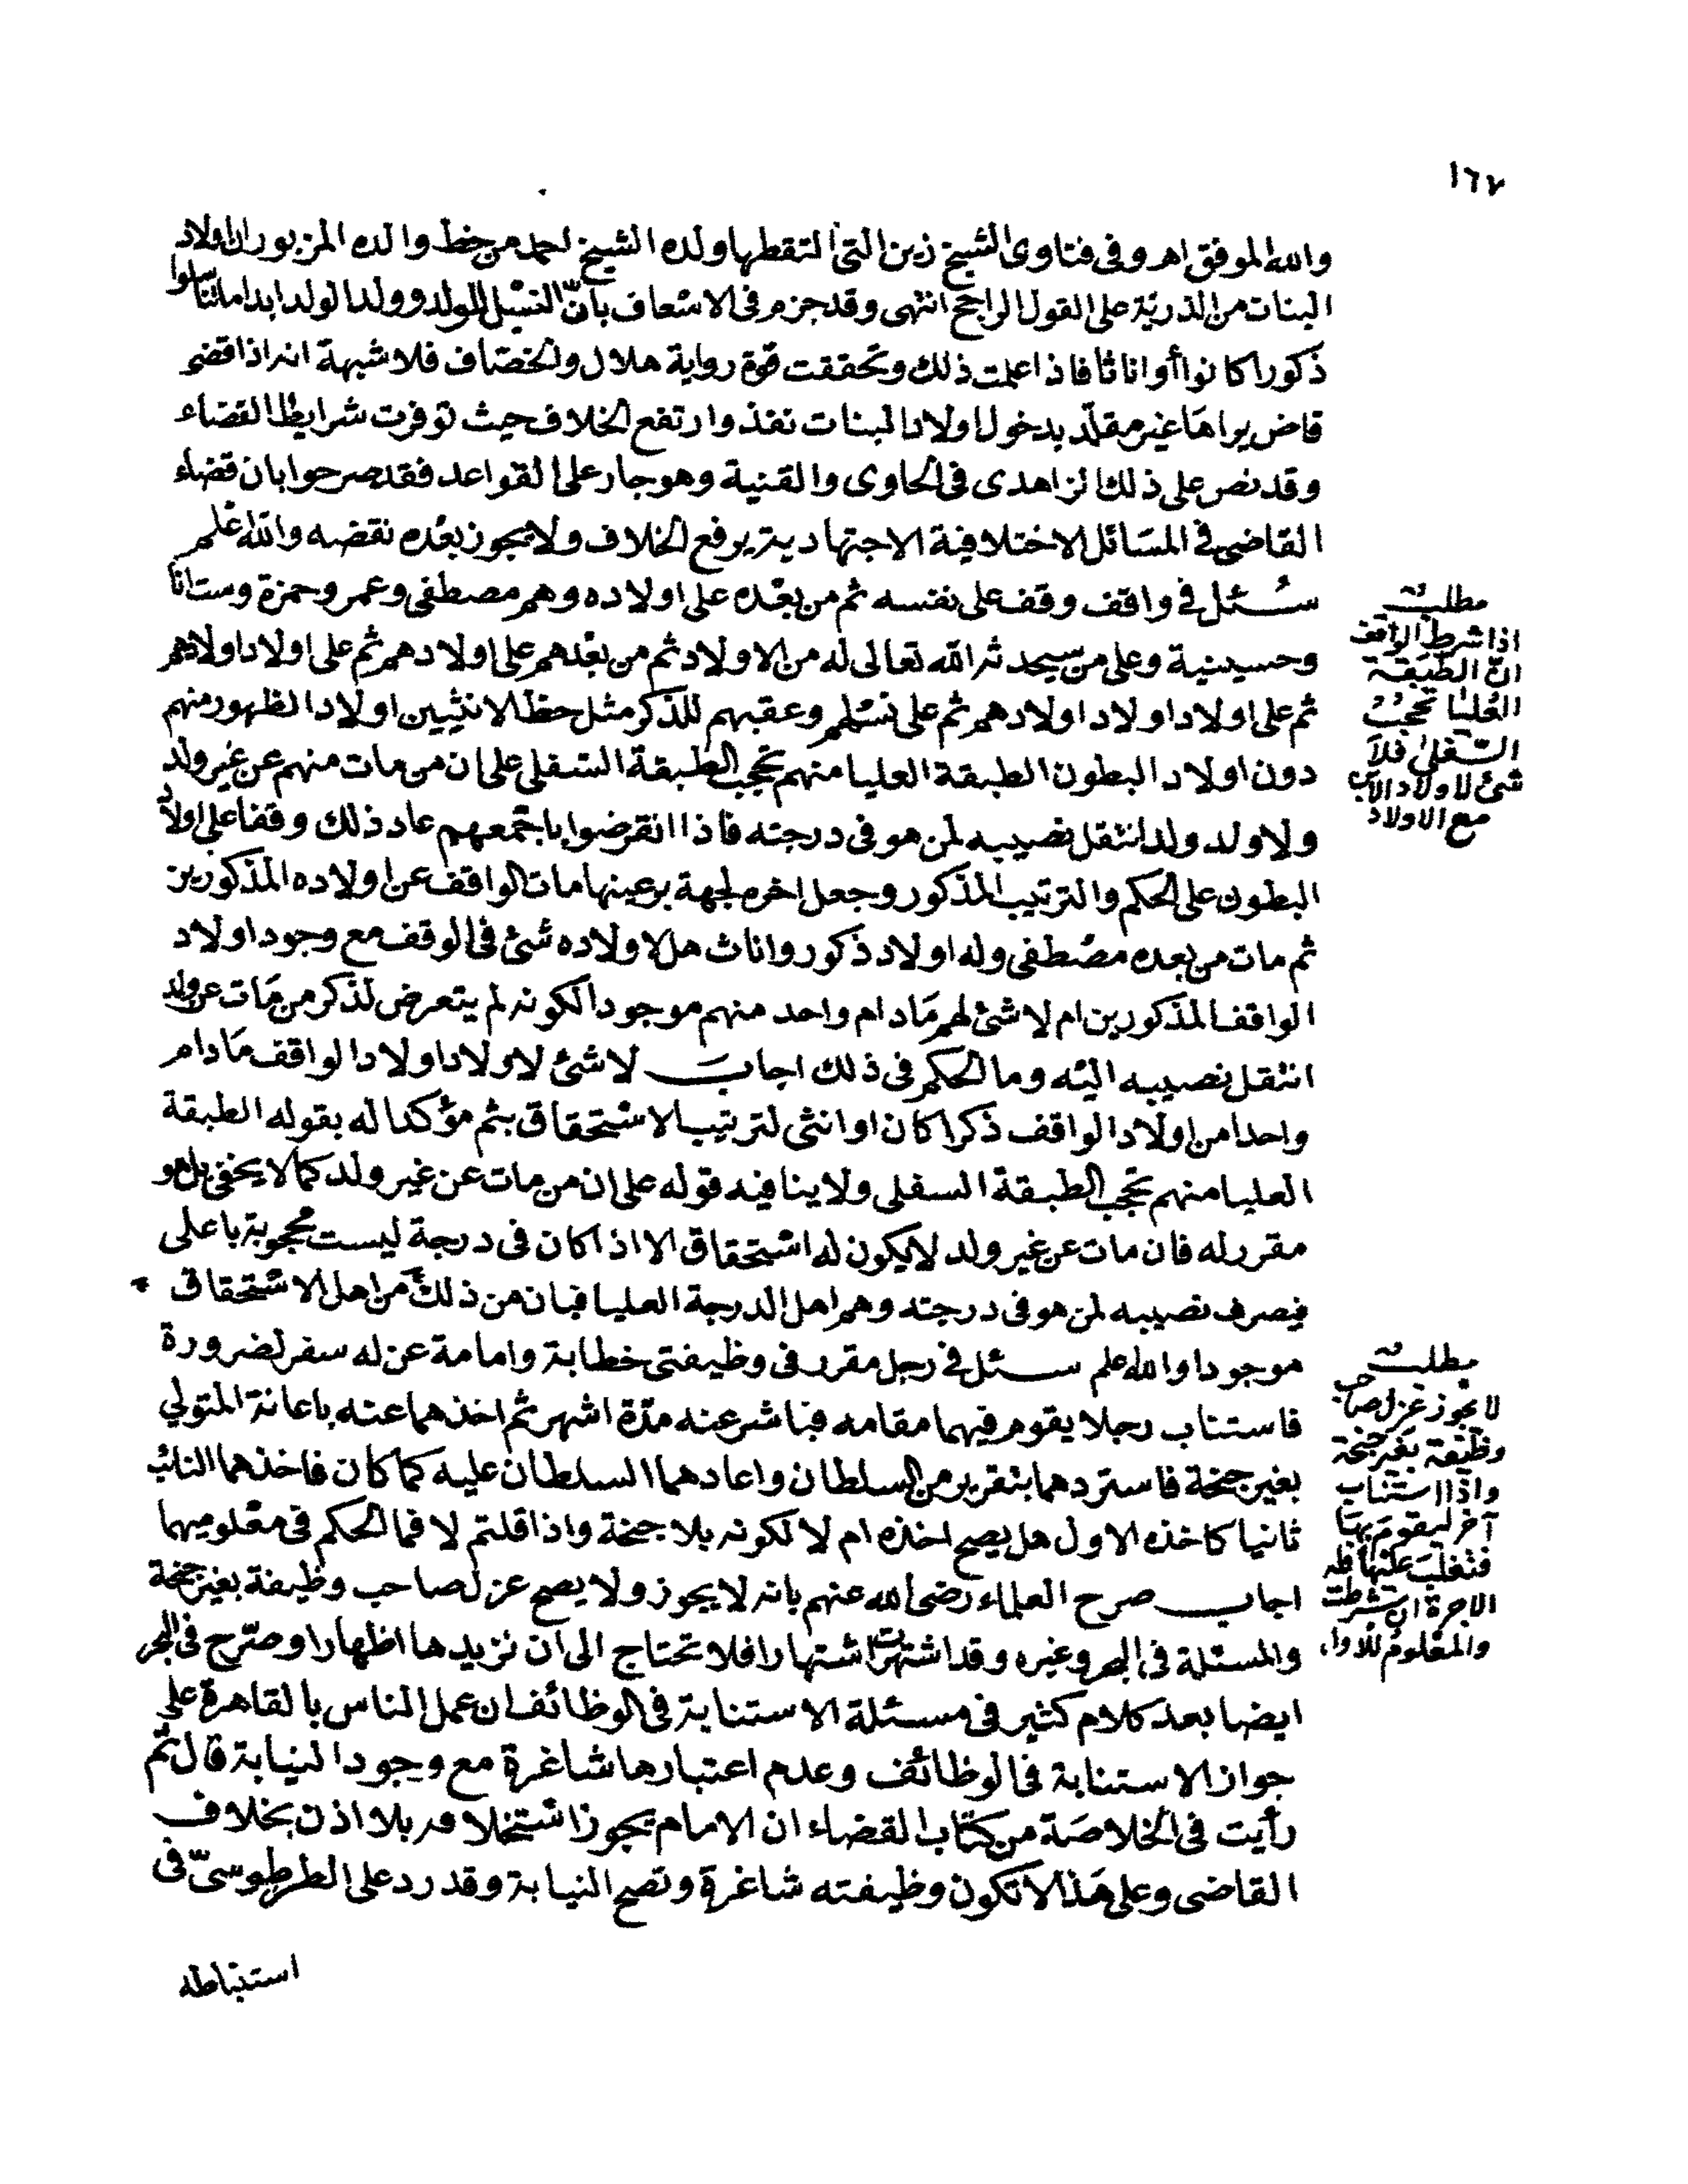 ١٦٧
والله الموفق اهـ وفى فتاوى الشيخ زين التى التقطها ولده الشيخ احمد من خط والده المزبور ان اولاد
البنات من الذرية على القول الراجح انتهى وقد جزم فى الاسعاف بأنّ النسل للولد وولد الولد ابدا ما تناسلوا
ذكورا كانوا أو اناثا فاذا علمت ذلك وتحققت قوة رواية هلال والخصاف فلا شبهة انه اذا قضى
قاض يراها غير مقلد بدخول اولاد البنات نفذ وارتفع الخلاف حيث توفرت شرايط القضاء
وقد نص على ذلك الزاهدى فى الحاوى والقنية وهو جار على القواعد فقد صرحوا بان قضاء
القاضى فى المسائل الاختلافية الاجتهادية يرفع الخلاف ولا يجوز بعده نقضه والله اعلم
سئل فى واقف وقف على نفسه ثم من بعده على اولاده وهم مصطفى وعمر وحمزة وستانا
وحسينية وعلى من سيحدثه الله تعالى له من الاولاد ثم من بعدهم على اولادهم ثم على اولاد اولادهم
ثم على اولاد اولاد اولادهم ثم على نسلهم وعقبهم للذكر مثل حظ الانثيين اولاد الظهور منهم
دون اولاد البطون الطبقة العليا منهم تحجب الطبقة السفلى على ان من مات منهم عن غير ولد
ولا ولد ولد انتقل نصيبه لمن هو فى درجته فاذا انقرضوا باجمعهم عاد ذلك وقفا على اولاد
البطون على الحكم والترتيب المذكور وجعل اخره لجهة بر عينها مات الواقف عن اولاده المذكورين
ثم مات من بعده مصطفى وله اولاد ذكور واناث هل لاولاده شئ فى الوقف مع وجود اولاد
الواقف المذكورين ام لا شئ لهم مادام واحد منهم موجودا لكونه لم يتعرض لذكر من مات عن ولد
انتقل نصيبه اليه وما الحكم فى ذلك اجاب لا شئ لاولاد اولاد الواقف مادام
واحدا من اولاد الواقف ذكرا كان او انثى لترتيب الاستحقاق بثم مؤكدا له بقوله الطبقة
العليا منهم تحجب الطبقة السفلى ولا ينافيه قوله على ان من مات عن غير ولد كما لا يخفى بل هو
مقرر له فان مات عن غير ولد لا يكون له استحقاق الا اذا كان فى درجة ليست محجوبة باعلى
فيصرف نصيبه لمن هو فى درجته وهم اهل الدرجة العليا فبان من ذلك من اهل الاستحقاق
موجودا والله اعلم سئل فى رجل مقرر فى وظيفتى خطابة وامامة عن له سفر لضرورة
فاستناب رجلا يقوم فيهما مقامه فباشر عنه مدة اشهر ثم اخذهما عنه باعانة المتولي
بغير جنحة فاستردهما بتقرير من السلطان واعادهما السلطان عليه كما كان فاخذهما النائب
ثانيا كاخذه الاول هل يصح اخذه ام لا لكونه بلا جنحة واذا قلتم لا فما الحكم فى معلوميهما
اجاب صرح العلماء رضى الله عنهم بانه لا يجوز ولا يصح عزل صاحب وظيفة بغير جنحة
والمسئلة فى البحر وغيره وقد اشتهرت اشتهارا فلا تحتاج الى ان نزيدها اظهارا وصرّح فى البحر
ايضا بعد كلام كثير فى مسئلة الاستنابة فى الوظائف ان عمل الناس بالقاهرة على
جواز الاستنابة فى الوظائف وعدم اعتبارها شاغرة مع وجود النيابة قال ثم
رأيت فى الخلاصة من كتاب القضاء ان الامام يجوز استخلافه بلا اذن بخلاف
القاضى وعلى هذا لا تكون وظيفته شاغرة وتصح النيابة وقد رد على الطرطوسىّ فى
استنباطه
مطلب
اذا شرط الواقف
انّ الطبقة
العليا تحجب
السفلى فلا
شئ لاولاد الاب
مع الاولاد
مطلب
لا يجوز عزل صاحب
وظيفة بغير جنحة
واذا استناب
آخر ليقوم بها
فتغلب عليها فله
الاجرة ان شرطت
والمعلوم للاول